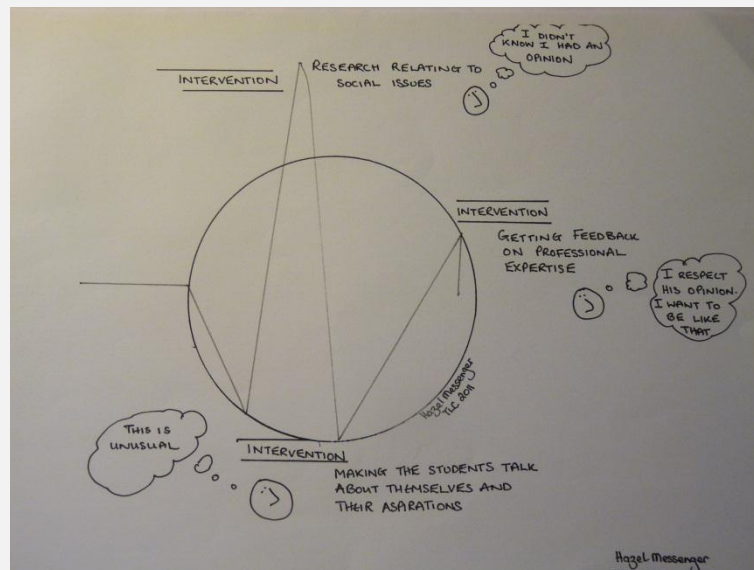 I DIDN'T
KNOW I HAD AN
OPINION
INTERVENTION
RESEARCH RELATING TO
SOCIAL ISSUES
INTERVENTION
GETTING FEEDBACK
ON PROFESSIONAL
EXPERTISE
I RESPECT
HIS OPINION.
I WANT TO
BE LIKE
THAT
Hazel Messenger
TLC 2011
THIS IS
UNUSUAL
INTERVENTION
MAKING THE STUDENTS TALK
ABOUT THEMSELVES AND
THEIR ASPIRATIONS
Hazel Messenger